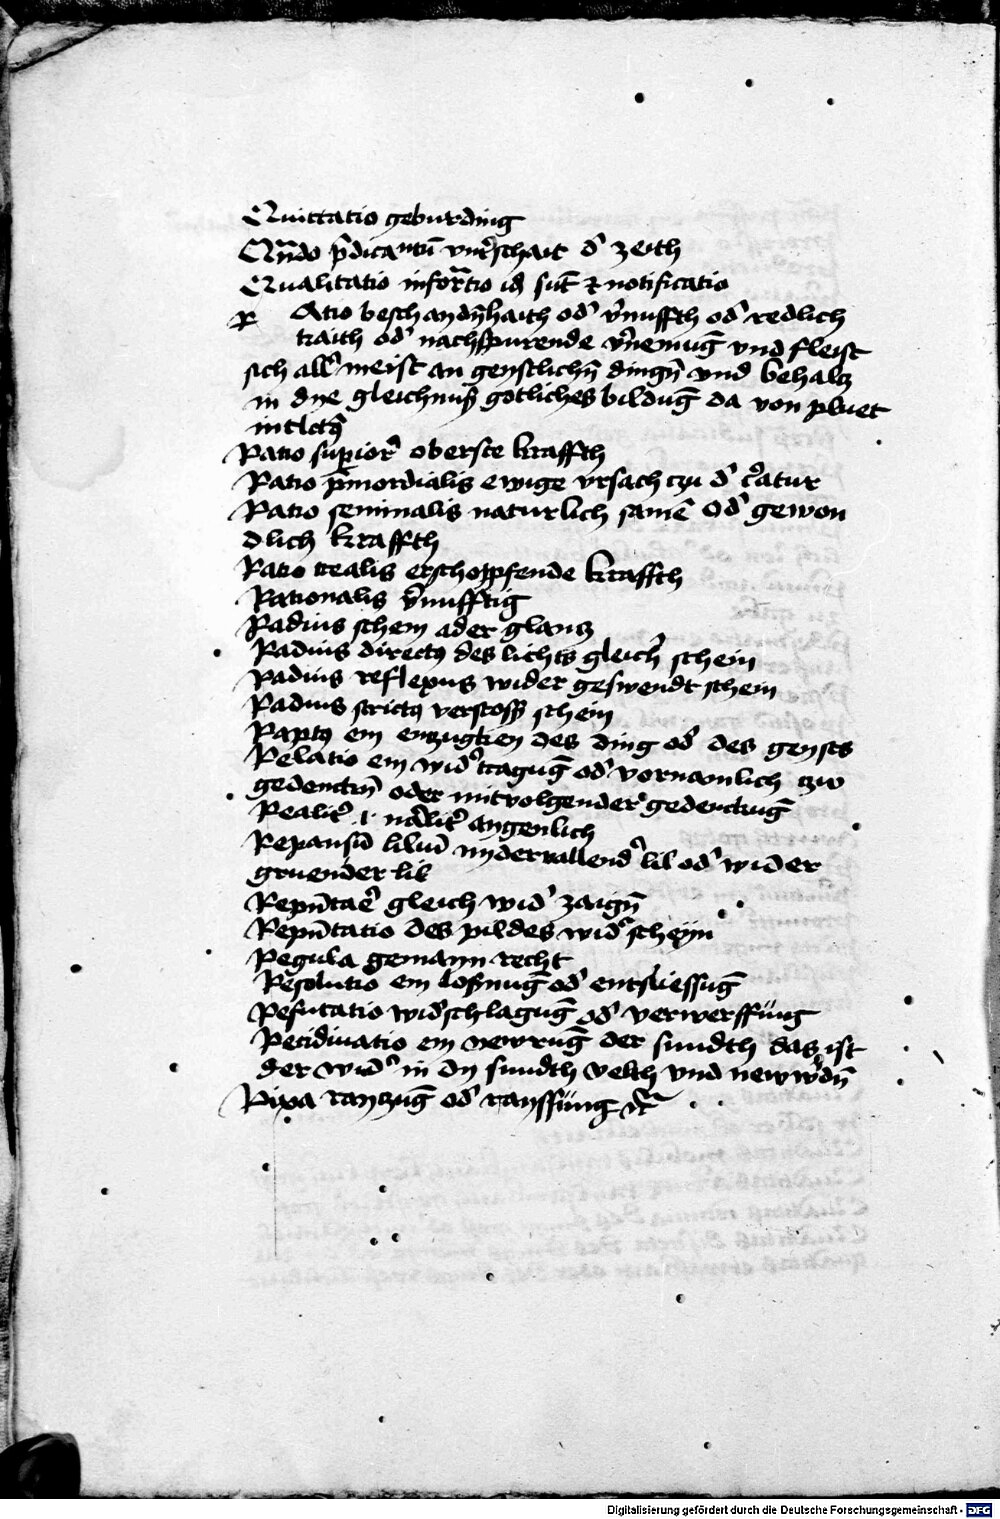 Quittatio geburding
Qn̄do p̄dicantū vnt͛schait d͛ zeith
Qualitatio infor̄tio id̄ sūt ⁊ notificatio
r Atio beschaydn̄haith od͛ v͛nufftħ od͛ redlich
kaith od͛ nachspurende v͛nemūg vnd fleist
sich all͛ meist an geystlichn̄ dingn̄ vnd behalt
in dye gleichnus gotliches bildūg da von pluet
intlctꝫ
Ratio sup̱ior͛ oberste kraffth
Ratio p̄mordialis ewige vrsach czu d͛ c͛atur
Ratio seminalis naturlich samē od͛ gewon
dlich kraffth
Ratio realis erschopfende kraffth
Rationalis v͛nufftig
Radius schein ader glantz
Radius directꝰ des lichts gleich͛ schein
Radius reflexus wider geswendt schein
Radius strictꝰ verstoss schein
Raptꝰ ein enczugken des ding od͛ des geysts
Relatio ein wid͛tragūg od͛ vornamlich czw
gedenckn̄ oder mitvolgender gedenckūg
Realit͛ .i. nālit͛ angenlich
Repansū liliū nyderuallend͛ lil od͛ wider
gruender lil
Rep̄ntare͛ gleich wid͛ zaign̄
Rep̄ntatio des pildes wid͛schein
Regula gemayn recht
Resolutio ein losnūg od͛ entsliessūg
Refutatio wid͛schlagūg od͛ verwerffūng
Recidiuatio ein newrūg der sundth das ist
der wid͛ in dy sundth velth vnd new w͛dn̄
Rixa ranczūg od͛ rauffūng ⁊c̄
Digitalisierung gefördert durch die Deutsche Forschungsgemeinschaft - DFG